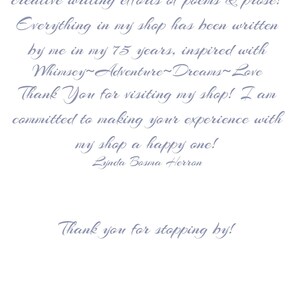 creative writing efforts of poems & prose!
Everything in my shop has been written
by me in my 75 years, inspired with
Whimsey~Adventure~Dreams~Love
Thank You for visiting my shop! I am
committed to making your experience with
my shop a happy one!
Lynda Bosma Herron
Thank you for stopping by!